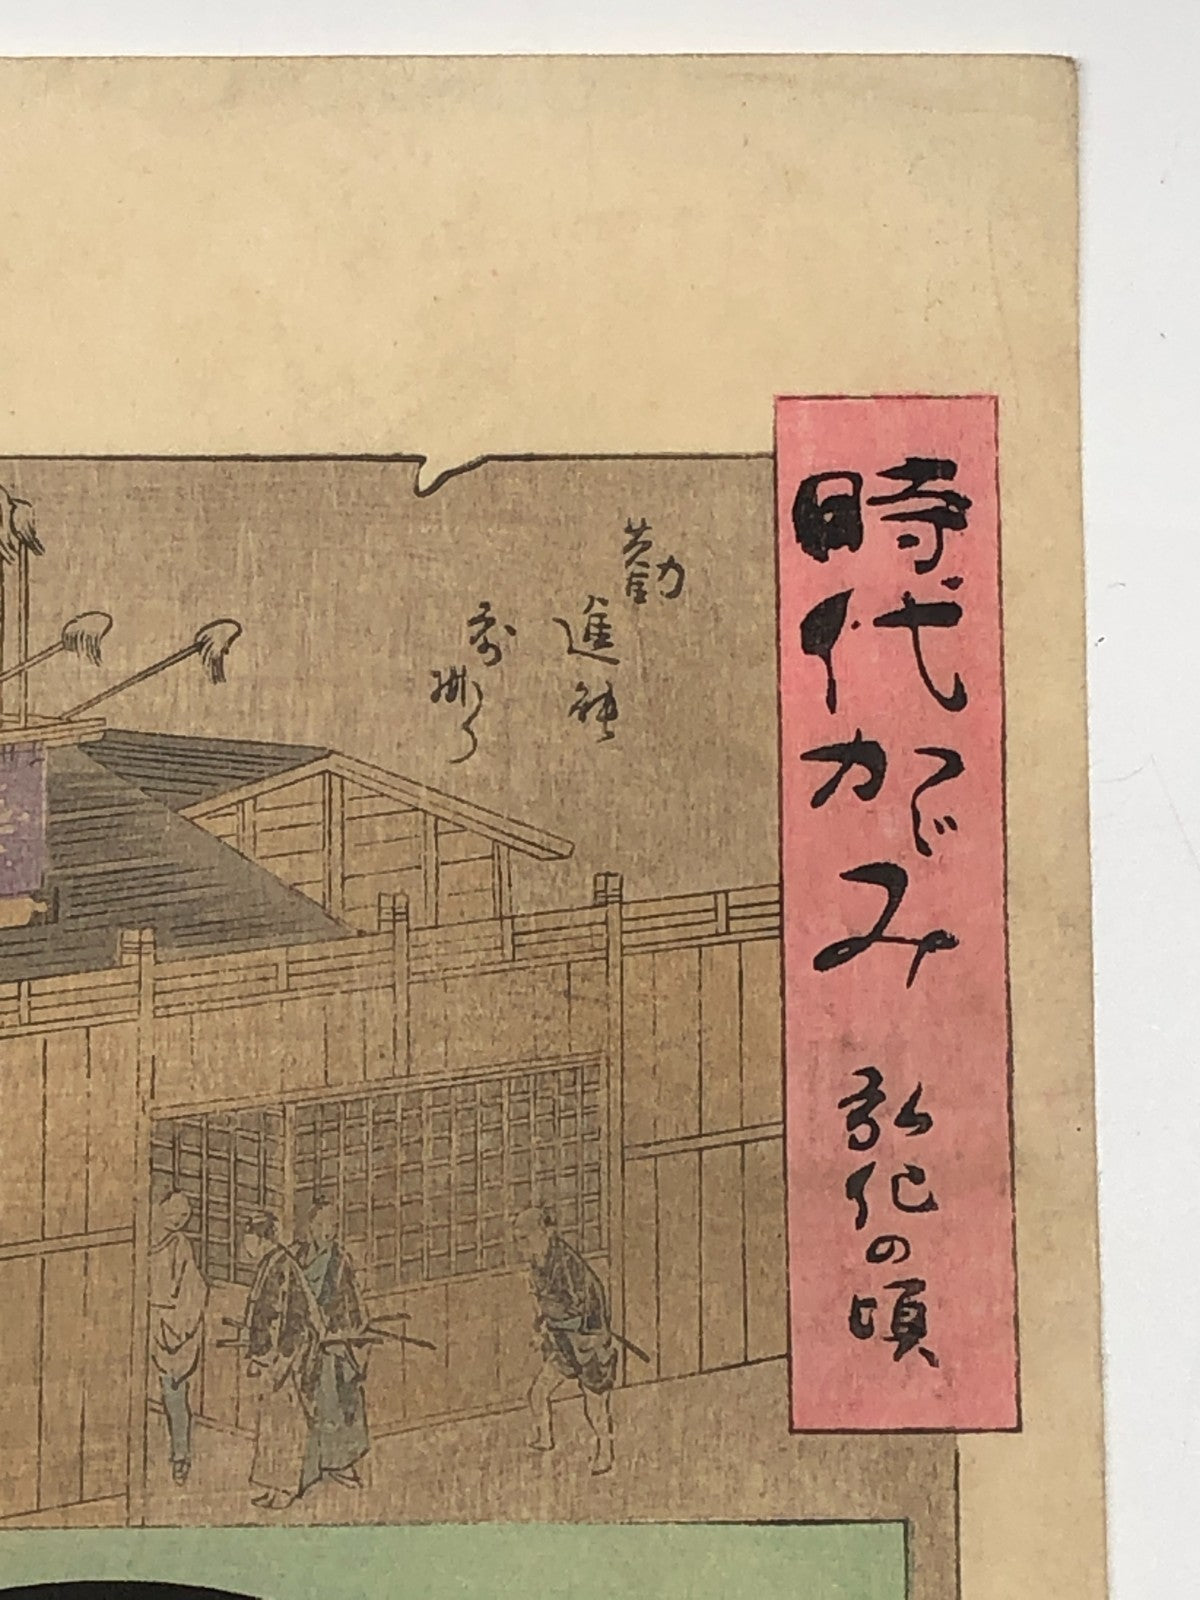 時代かゞみ
弘化の頃
勧
進能